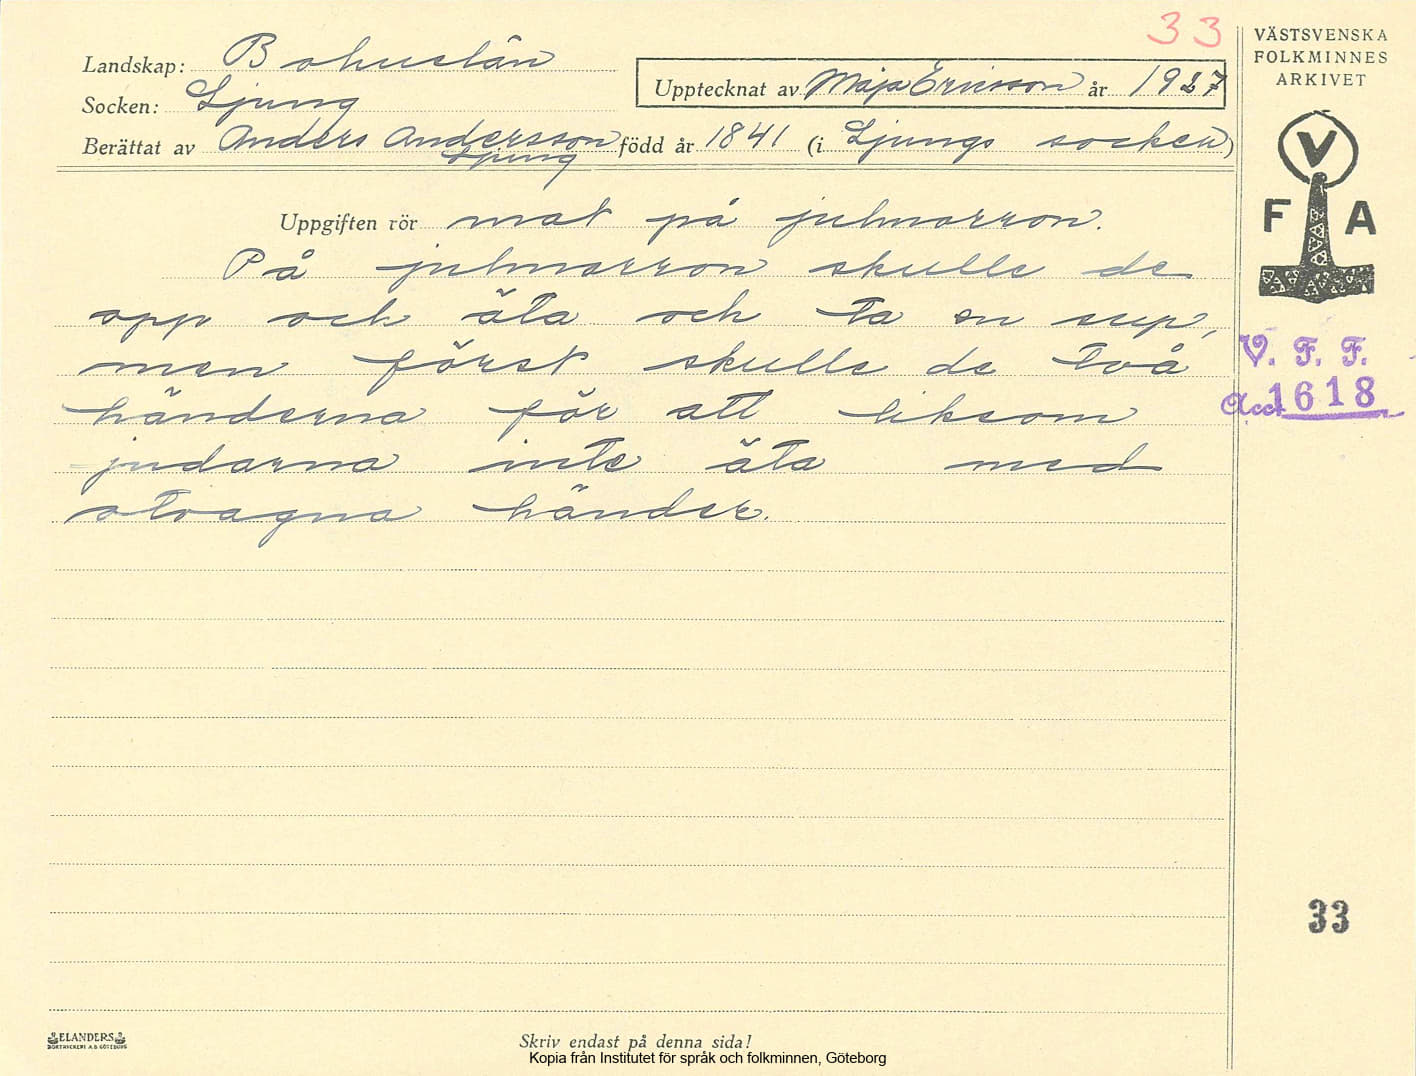 33
Landskap: Bohuslän
Socken: Ljung
Upptecknat av Maja Ericsson år 1927
Berättat av Anders Andersson född år 1841 (i Ljungs socken)
Ljung
Uppgiften rör mat på julmorron.
På julmorron skulle de
opp och äta och ta en sup,
men först skulle de två
händerna för att liksom
judarna inte äta med
otvagna händer.
VÄSTSVENSKA
FOLKMINNES
ARKIVET
V
F A
V. F. F.
Acc 1618
33
ELANDERS
BOKTRYCKERI A.B. GÖTEBORG
Skriv endast på denna sida!
Kopia från Institutet för språk och folkminnen, Göteborg